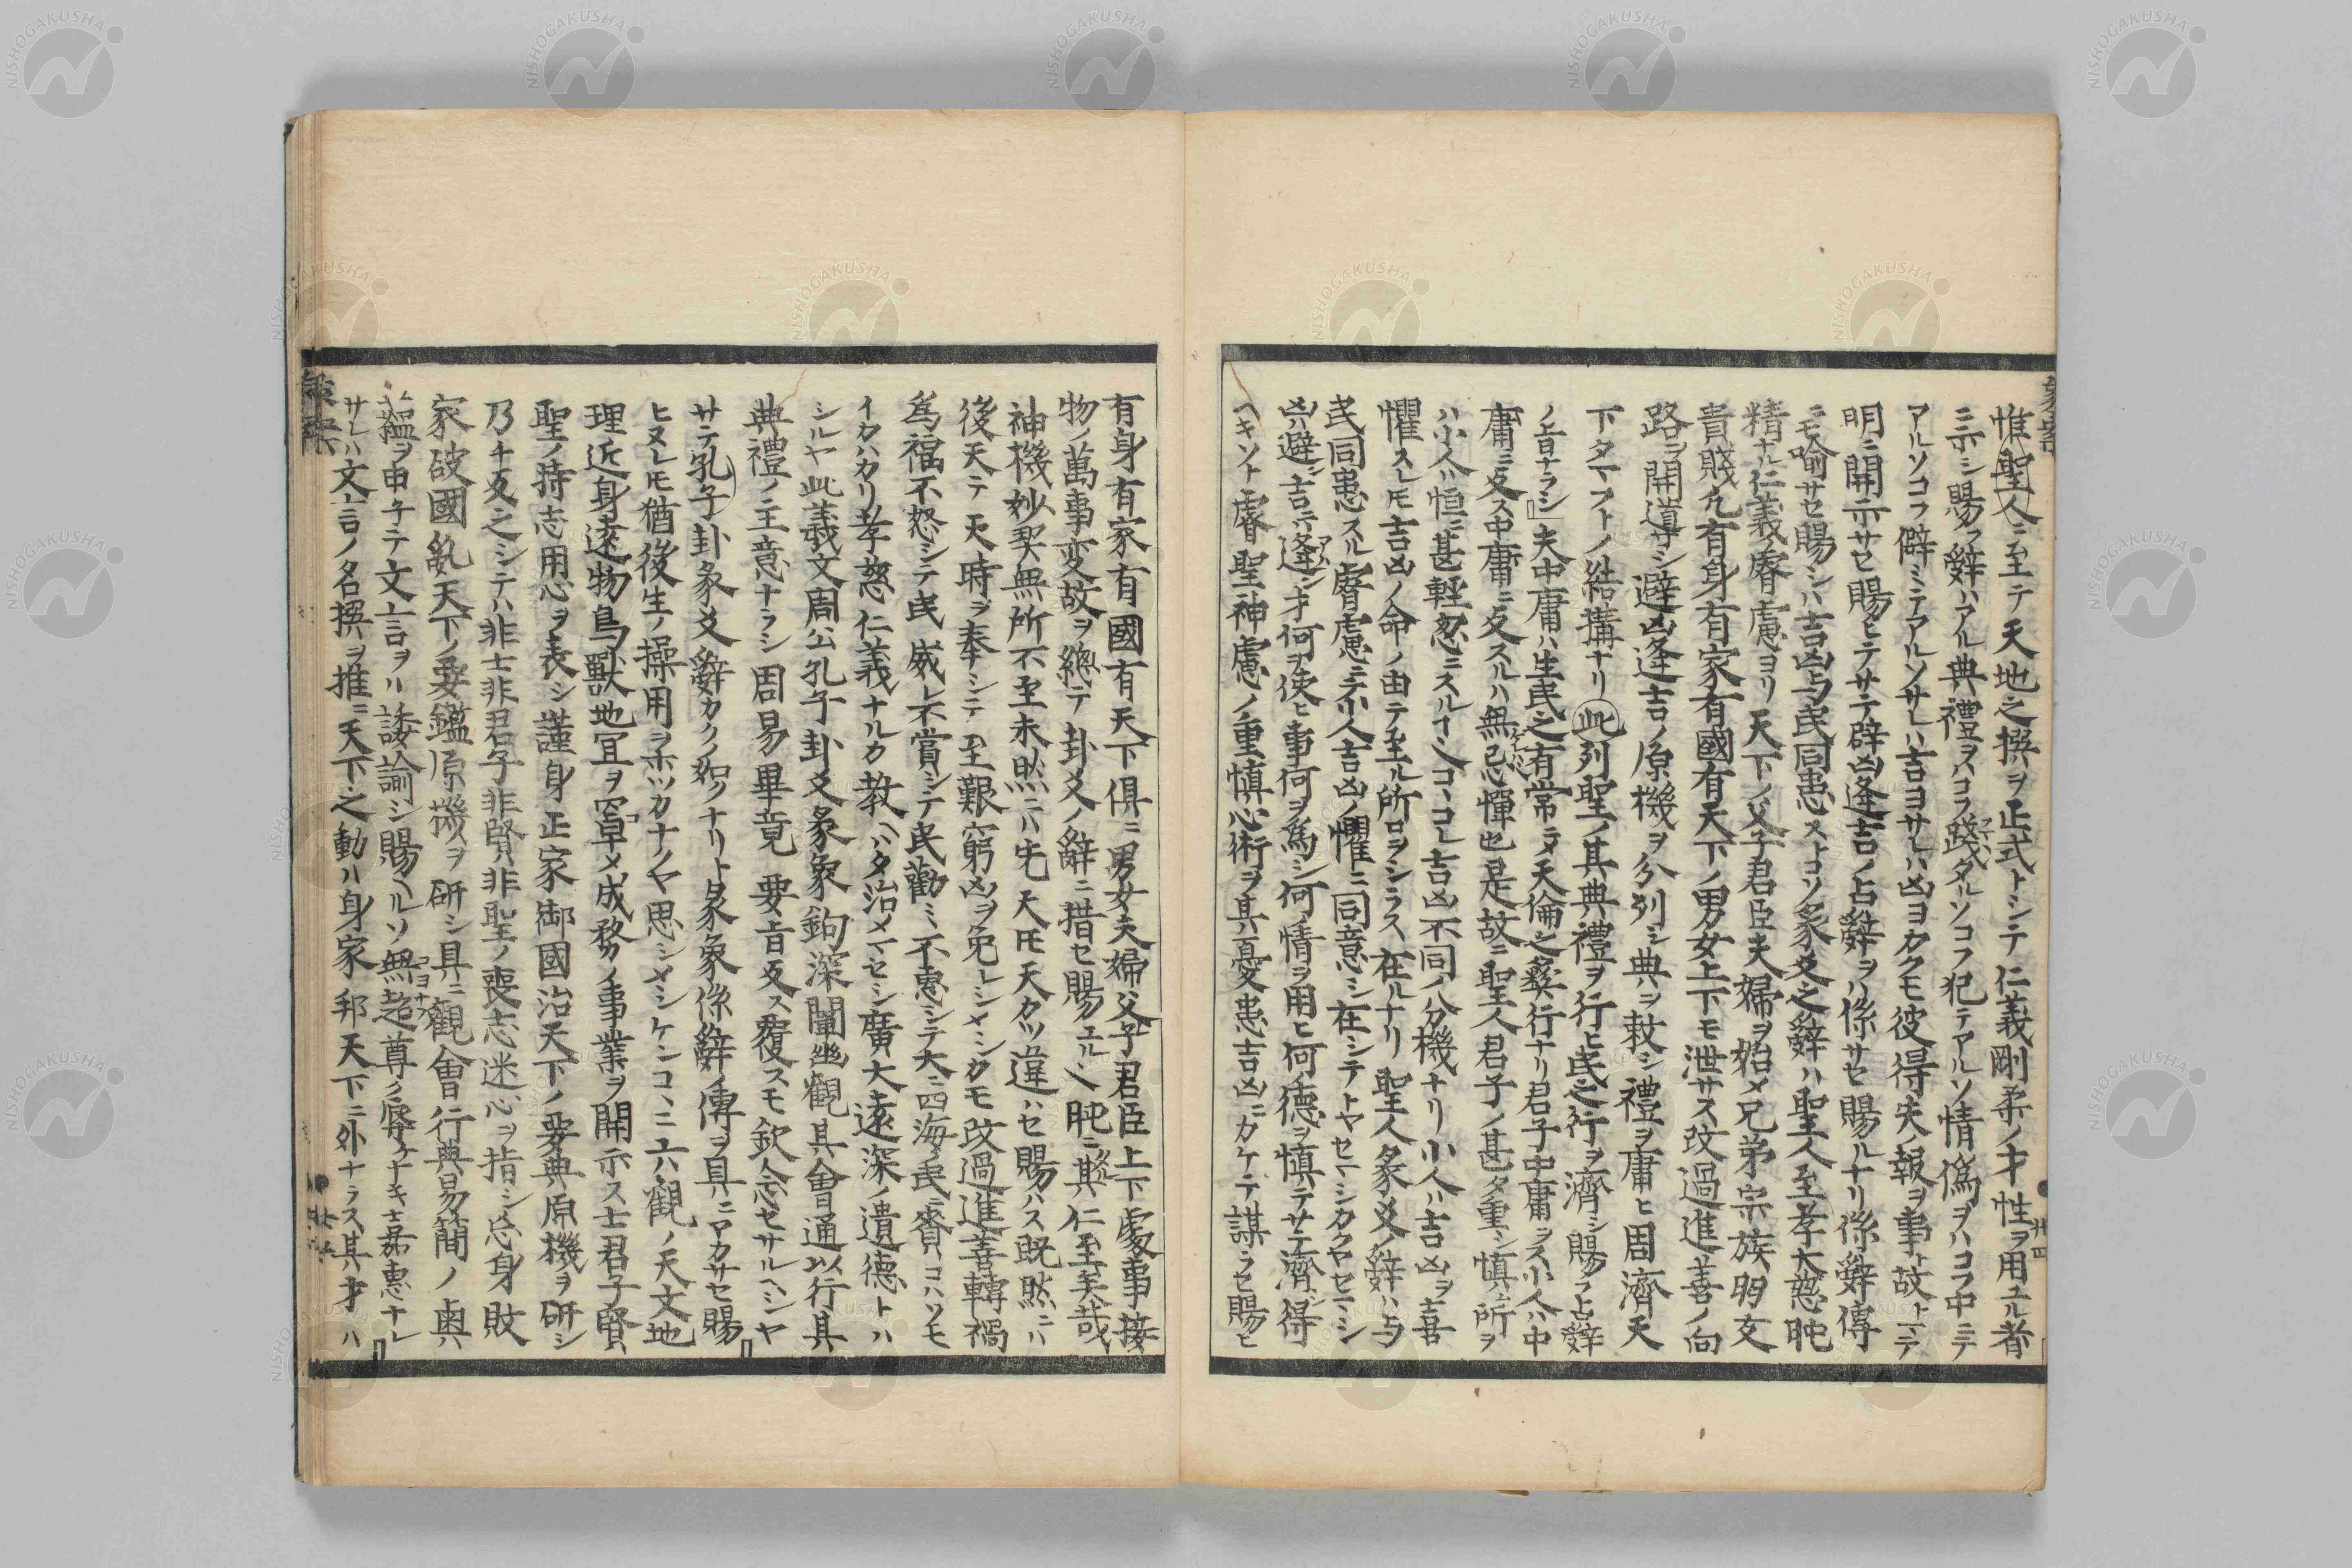 惟聖人ニ至テ天地之撰ヲ正式トシテ仁義剛柔ノ才性ヲ用ユル者
ニ示シ賜フ辭ハアル典禮ヲハコフ踐タルソコフ犯テアルソ情偽ヲハコフ中ニテ
アルソコフ僻ミテアルソサレハ吉ヨサレハ凶ヨカクモ彼得失ノ報ヲ事ト故トニテ
明ニ開示サセ賜ヒテサテ辟凶逢吉ノ占辭ヲハ係サセ賜ルナリ係辭傳
ニモ喩サセ賜シハ吉凶与民同患ストコソ象爻之辭ハ聖人至孝大慈肫
精ナル仁義睿慮ヨリ天下ノ父子君臣夫婦ヲ始メ兄弟宗族朋友
貴賤凡有身有家有國有天下ノ男女上下モ泄サス改過進善ノ向
路ヲ開導シ避凶逢吉ノ原機ヲ分列シ典ヲ敕シ禮ヲ庸ヒ周濟天
下タマフトノ結構ナリ此列聖ノ其典禮ヲ行ヒ民之行ヲ濟シ賜フ占辭
ノ旨ナラシ夫中庸ハ生民之有常ヲ天倫之彝行ナリ君子中庸ヲス小人ハ中
庸ニ反ス中庸ニ反スルハ無忌憚也是故ニ聖人君子ノ甚タ重シ慎ム所ヲ
ハ小人ハ恒ニ甚軽忽ニスルヿ也コレ吉凶不同ノ分機ナリ小人ハ吉凶ヲ喜
懼スレモ吉凶ノ命ノ由テ至ル所ロヲシラス在ルナリ聖人象爻ノ辭ハ与
民同患スル睿慮ニテ小人吉凶ノ懼ニ同意シ在シテトヤセマシカクヤセマシ
凶避シ吉ニ逢ン才何ヲ使ヒ事何ヲ爲シ何ノ情ヲ用ヒ何德ヲ慎テサテ濟シ得
ヘキソト睿聖神慮ノ重慎心術ヲ其憂患吉凶ニカケテ謀ラセ賜ヒ
有身有家有國有天下倶ニ男女夫婦父子君臣上下處事接
物ノ萬事変故ヲ總テ卦爻ノ辭ニ措セ賜ユル也肫ニ其仁至矣哉
神機妙契無所不至未然ニハ先天テ天カツ違ハセ賜ハス既然ニハ
後天テ天時ヲ奉シテ至艱窮凶ヲ免レシメシカモ改過進善轉禍
爲福不怒シテ民威レ不賞シテ民勸ミ不惠シテ大ニ四海ノ民ニ賚コハソモ
イカハカリ孝慈仁義ナルカ教ヘハタ治メマセシ廣大遠深ノ遺徳トハ
シルヤ此羲文周公孔子卦爻彖象鉤深闡幽觀其會通以行其
典禮ノ主意ナラシ周易畢竟要旨反ス覆スモ欽念セサルヘシヤ
サテ孔子卦彖爻辭カクノ如クナリト彖象係辭ノ傳ヲ具ニマカサセ賜
ヒヌレモ猶後生ノ操用ヲホツカナノヤ思シメシケンコヽニ六觀ノ天文地
理近身遠物鳥獸地宜ヲ罩メ成務ノ事業ヲ開示ス士君子賢
聖ノ持志用心ヲ表シ謹身正家御國治天下ノ要典原機ヲ研シ
乃チ反之シテハ非士非君子非賢非聖ノ喪志迷心ヲ指シ忘身敗
家破國亂天下ノ要鑑原機ヲ研シ具ニ觀會行典易簡ノ奥
蘊ヲ申子テ文言ヲハ諉諭シ賜ヘルソ無超尊ク辱ケナキ嘉惠ナレ
サレハ文言ノ名撰ヲ推ニ天下之動ハ身家邦天下ニ外ナラス其才ハ